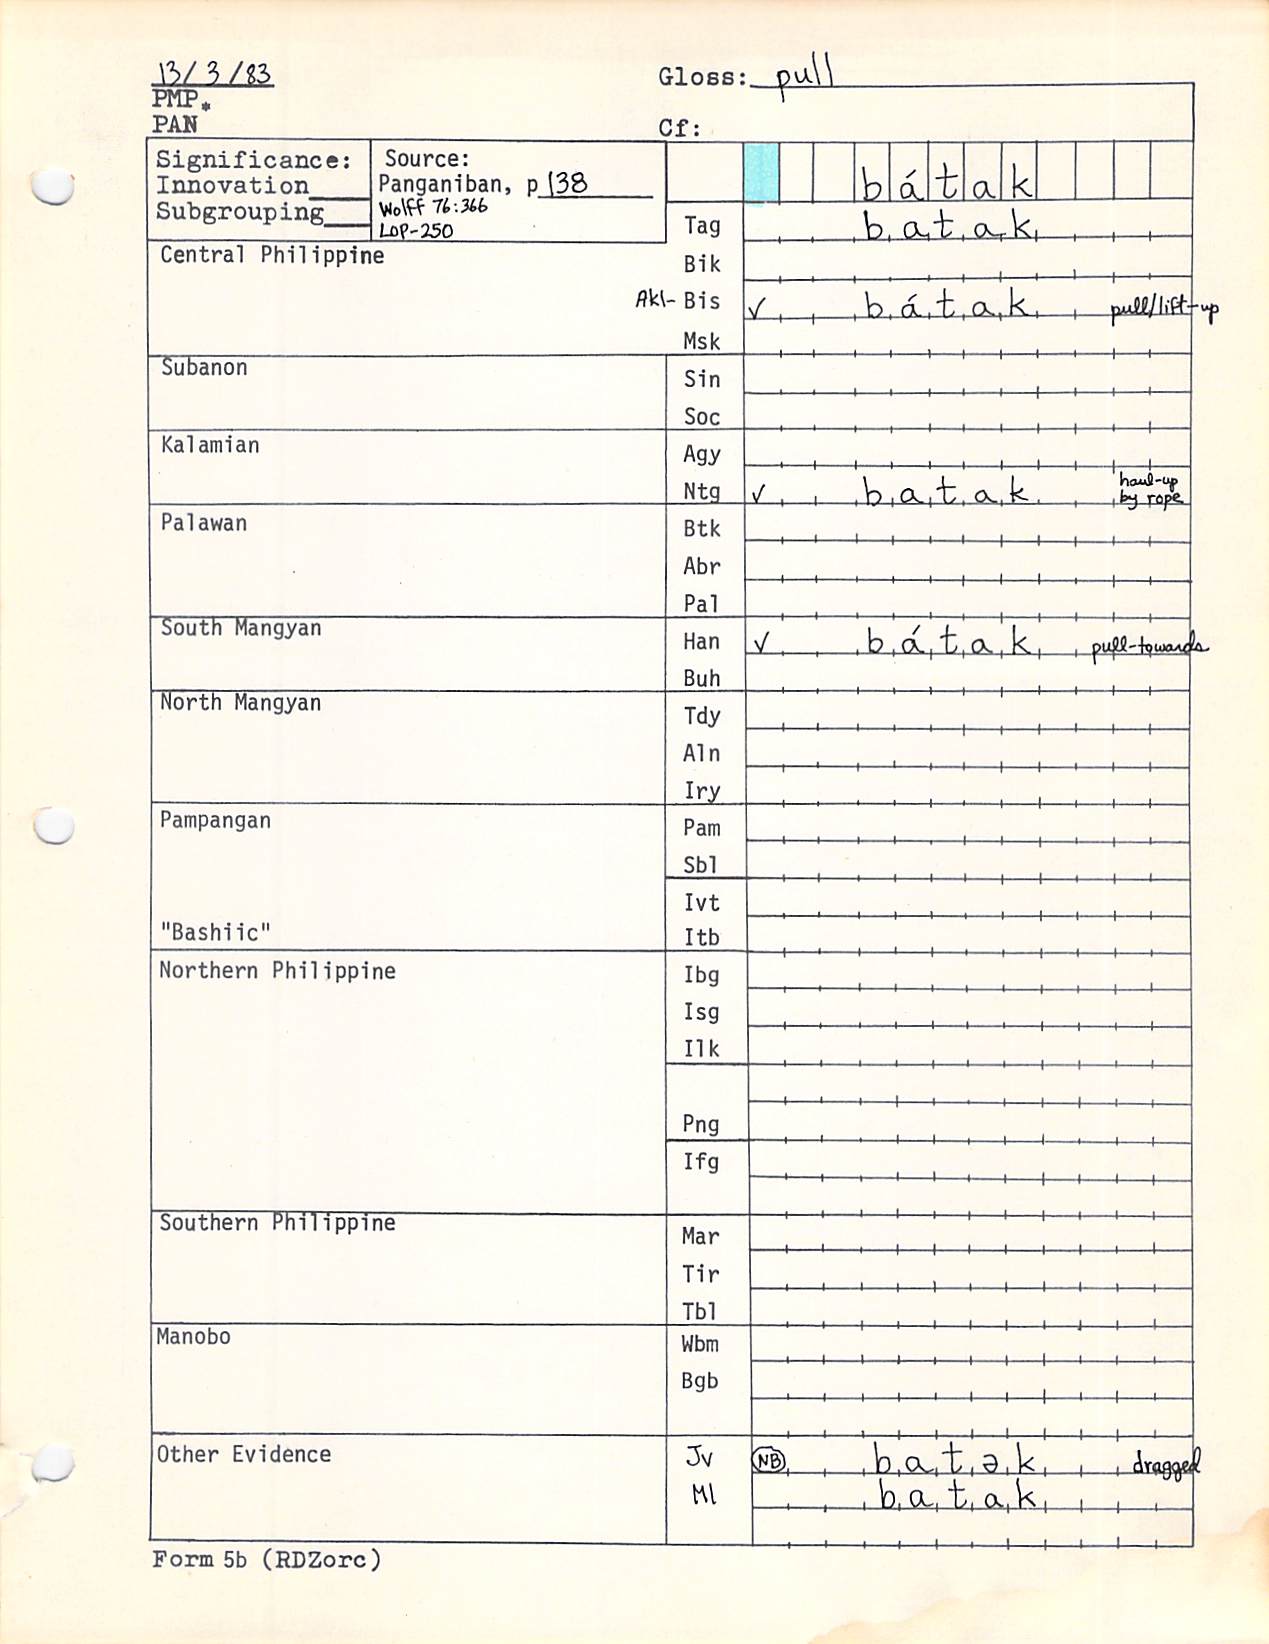 13/3/83
Gloss: pull
PMP*
PAN
Cf:
Significance:
Innovation
Subgrouping
Source:
Panganiban, p 138
Wolff 76:366
LOP-250
bátak
Tag batak
Central Philippine
Bik
Akl- Bis ✓ bátak pull/lift-up
Msk
Subanon
Sin
Soc
Kalamian
Agy
Ntg ✓ batak haul-up
by rope
Palawan
Btk
Abr
Pal
South Mangyan
Han ✓ bátak pull-towards
Buh
North Mangyan
Tdy
Aln
Iry
Pampangan
Pam
Sbl
Ivt
"Bashiic"
Itb
Northern Philippine
Ibg
Isg
Ilk
Png
Ifg
Southern Philippine
Mar
Tir
Tbl
Manobo
Wbm
Bgb
Other Evidence
Jv NB batək dragged
Ml batak
Form 5b (RDZorc)